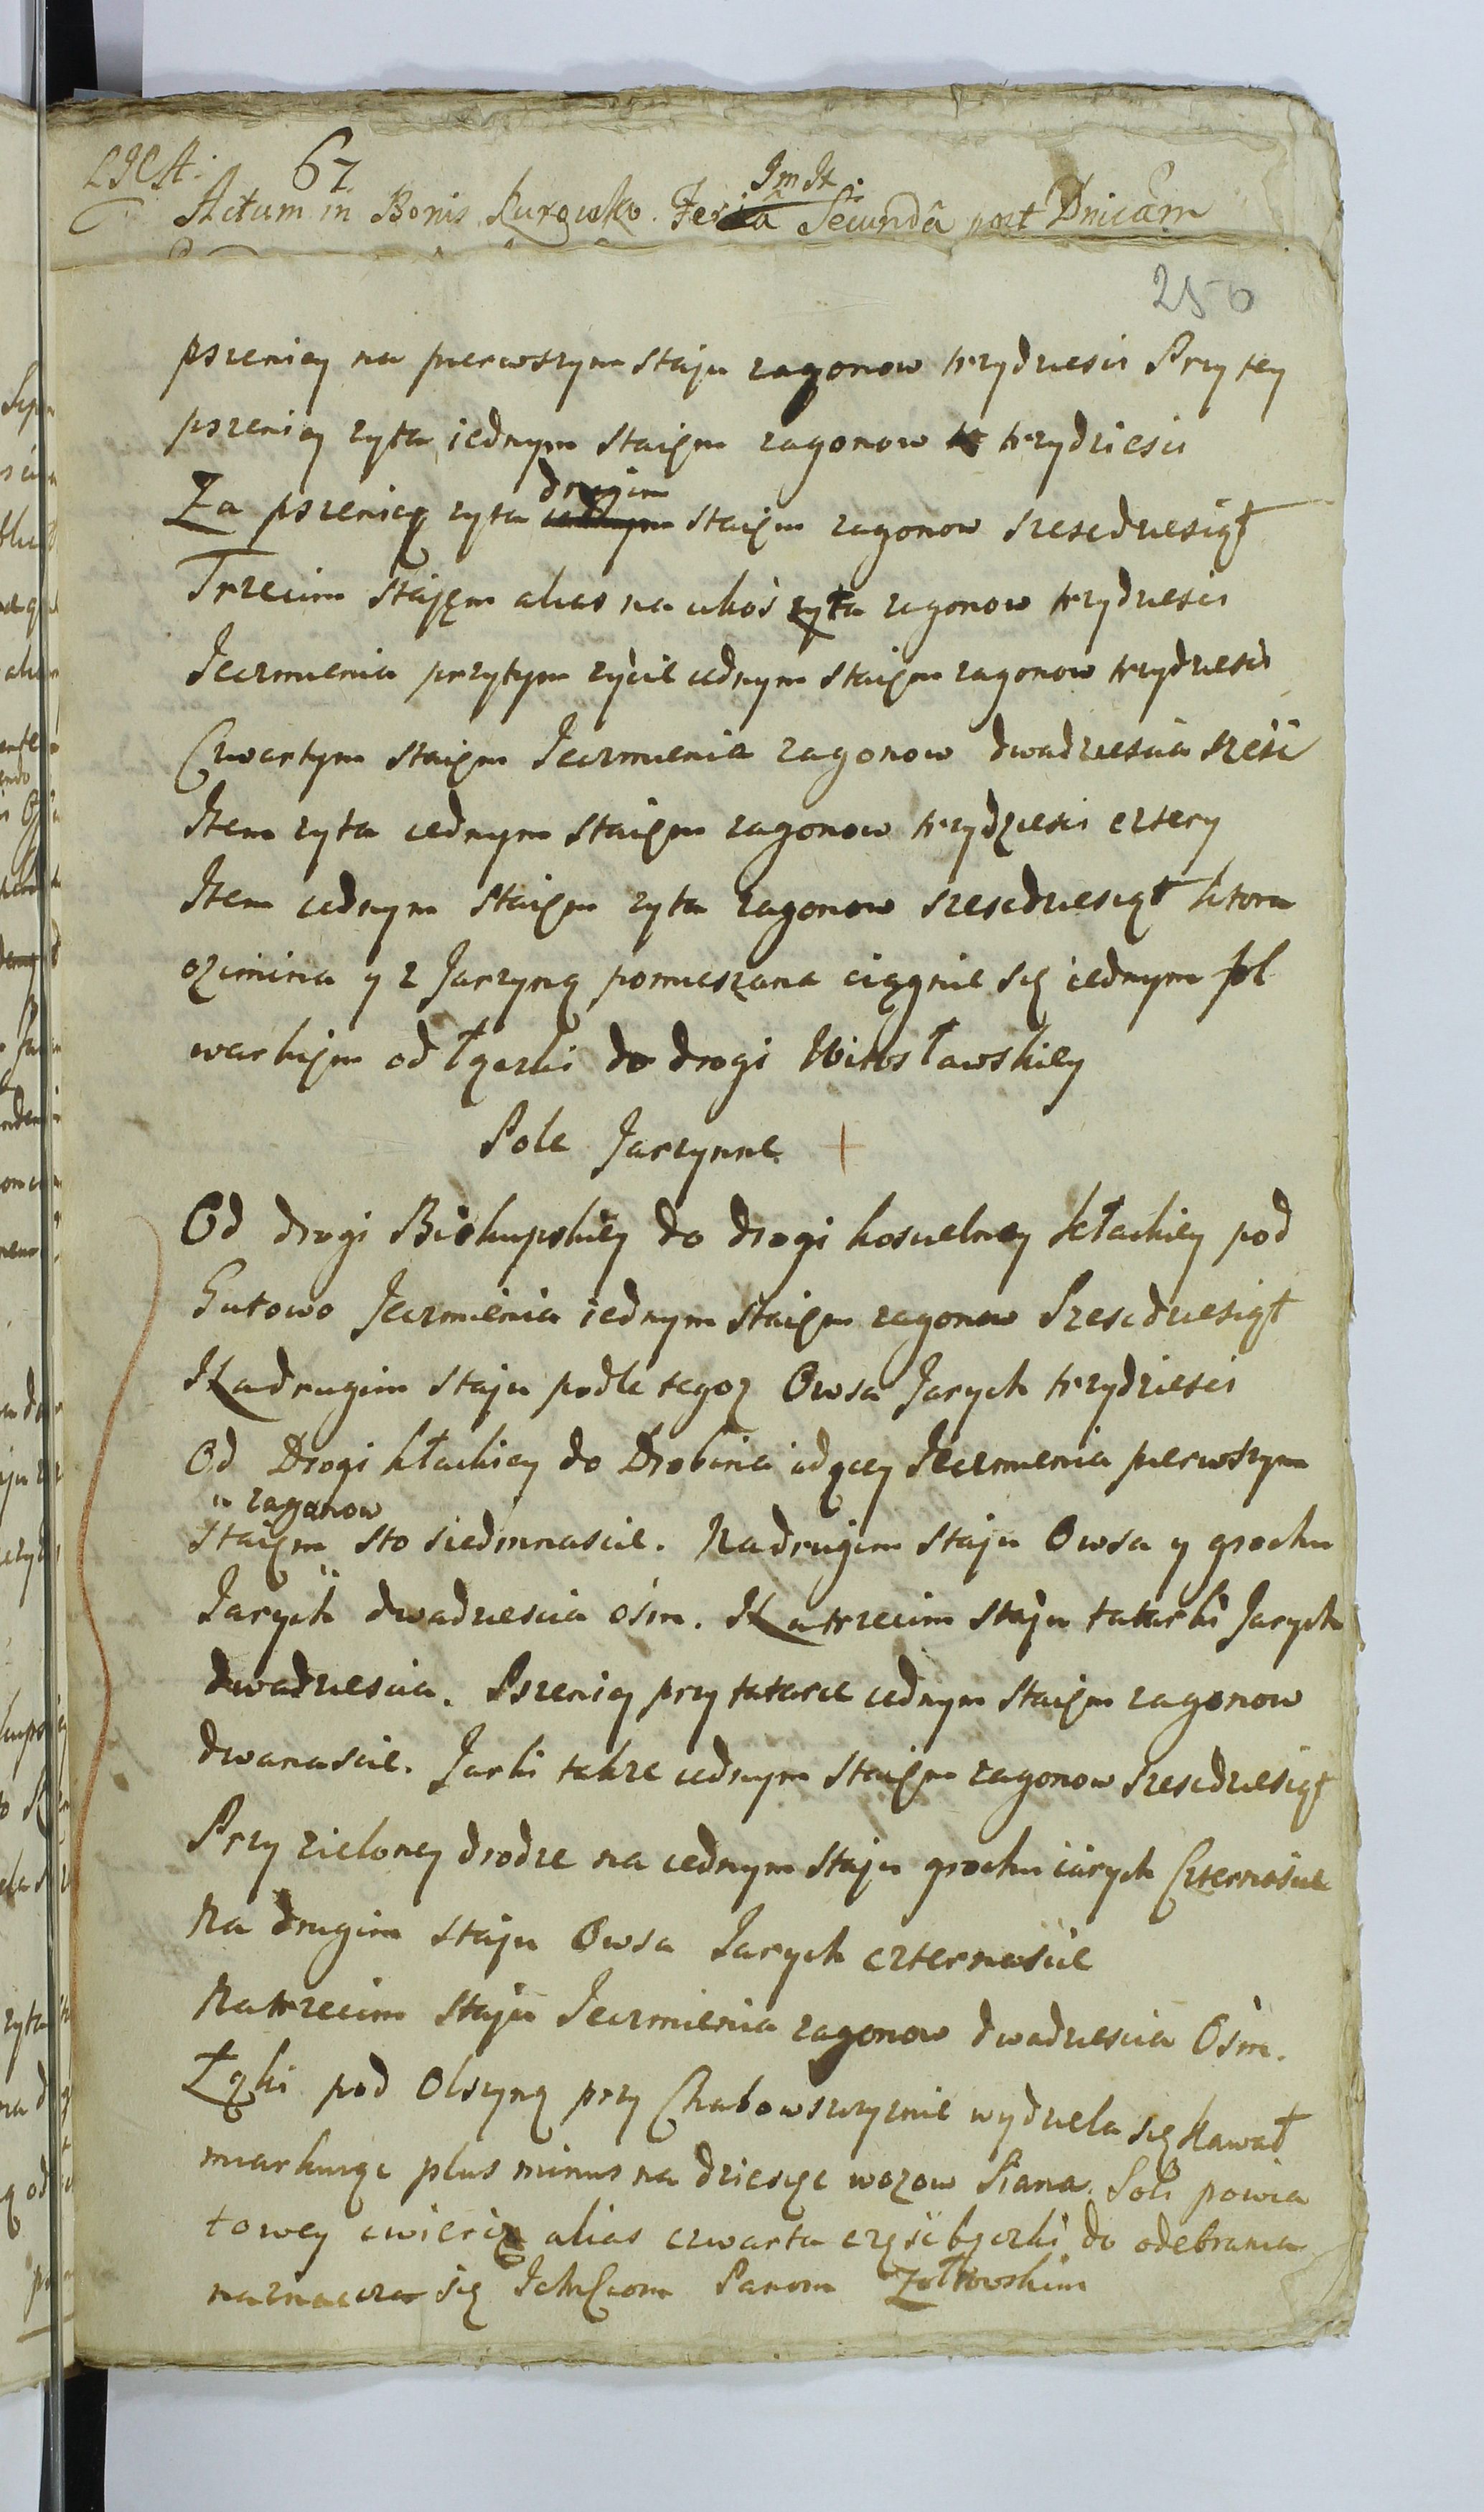 67
Actum in Bonis Kurowko. Feria Secundâ post Dnicam
250
pszenicy na pierwszym staju zagonow trzydziesci Przy tey
pszenicy zyta iednym staięm zagonow trzydziesci
Za pszenicą zyta drugim staięm zagonow szescdziesiąt
Trzecim stajęm alias na ukoś zyta zagonow trzydziesci
Jeczmienia przytym zycie iednym staięm zagonow trzydziesci
Czwartym staięm Jeczmienia zagonow dwadziescia sześć
Item zyta iednym staięm zagonow trzydziesci cztery
Item iednym staięm zyta zagonow szescdziesiąt ktora
ozimina y z Jarzyną pomieszana ciągnie się iednym fol
warkięm od łączki do drogi Witosławskiey
Pole Jarzynne
Od drogi Biskupskiey do drogi koscielney kłackiey pod
Gutowo Jeczmienia iednym staięm zagonow Szescdziesiąt
Na drugim staju podle tegoz Owsa Jarych trzydziesci
Od Drogi kłackiey do Drobina idącey Jeczmienia pierwszym
zagonow
staięm sto siedmnascie. Na drugim staju Owsa y grochu
Jarych dwadziescia ośm. Na trzecim staju tatarki Jarych
dwadziescia. Pszenicy przy tatarce iednym staięm zagonow
dwanascie. Jarki takze iednym staięm zagonow szescdziesiąt
Przy zieloney drodze na iednym staju grochu iarych Czternaście
Na drugim staju Owsa Jarych czternaście
Na trzecim staju Jeczmienia zagonow dwadziescia Ośm.
Łąki pod Olszyną przy Chabowszczyznie wydziela się kawał
miarkuiąc plus minus na dziesięc wozow Siana. Soli powia
towey cwierć alias czwarta częśc beczki do odebrania
naznacza się Ichmciom Panom Zołtowskim